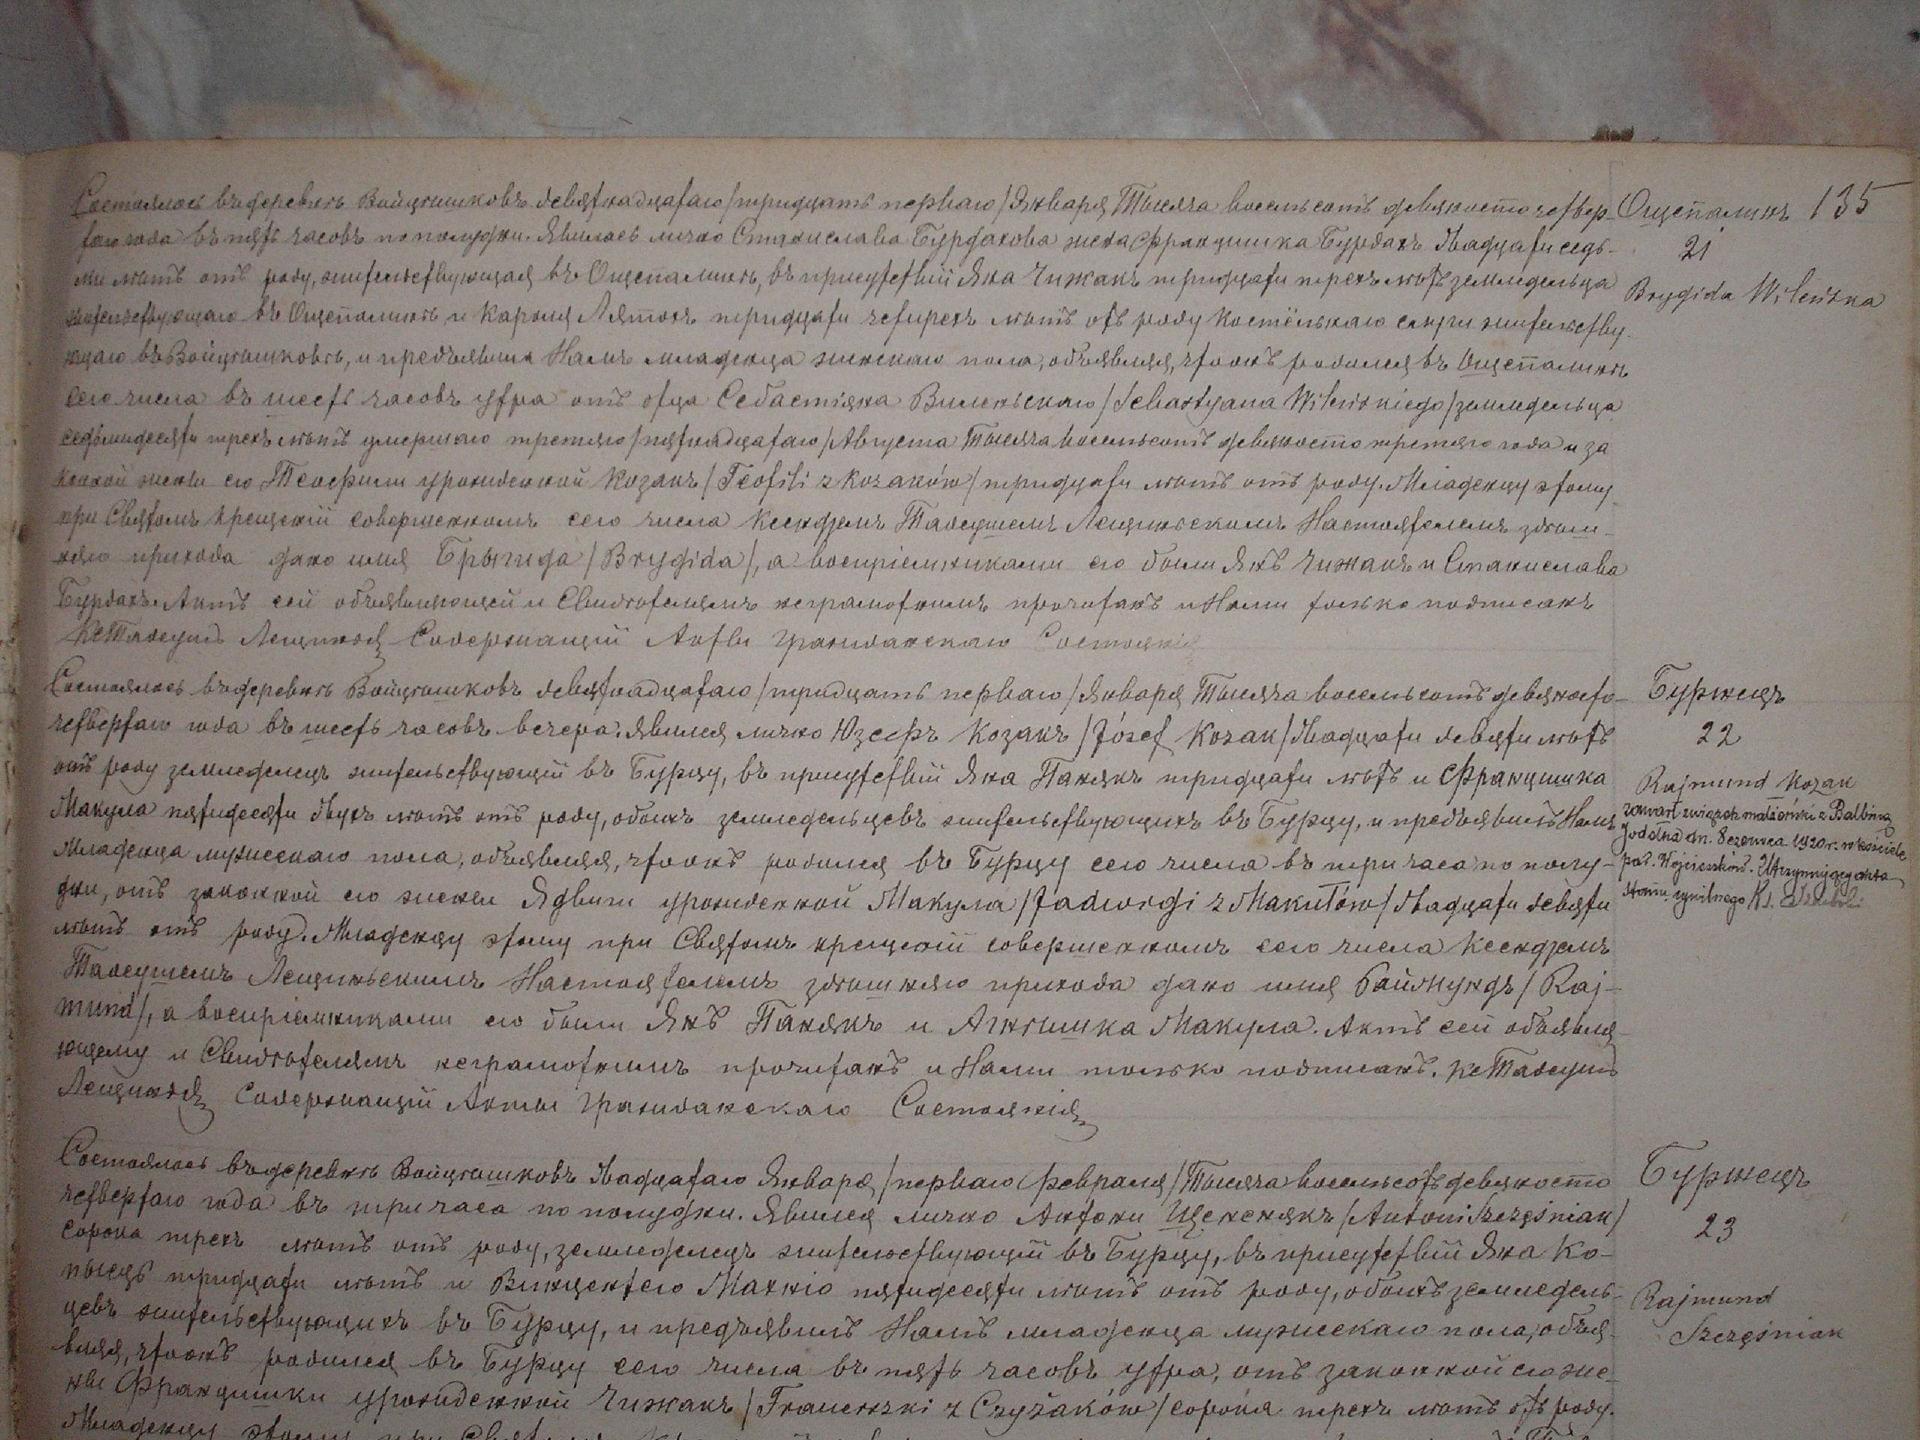 135
Ощепалинъ
21
Brygida Wileńska
Состоялось въ деревнѣ Войцѣшковъ девятнадцатаго /тридцать перваго/ Января Тысяча восемьсотъ девяносто четвер-
таго года въ пять часовъ по полудни. Явилась лично Станислава Бурдахова жена Францишка Бурдахъ двадцати седь-
ми лѣтъ отъ роду, жительствующая въ Ощепалинѣ, въ присутствіи Яна Чижакъ тридцати трехъ лѣтъ земледельца
жительствующаго въ Ощепалинѣ и Кароля Лятохъ тридцати четырехъ лѣтъ отъ роду костёльнаго слуги жительству-
ющаго въ Войцѣшковѣ, и предъявила Намъ младенца женскаго пола, объявляя, что онъ родился въ Ощепалинѣ
сего числа въ шесть часовъ утра отъ отца Себастіяна Виленьскаго /Sebastyana Wileńskiego/ земледельца
седьмидесяти трехъ лѣтъ умершаго третьяго /пятнадцатаго/ Августа Тысяча восемьсотъ девяносто третьяго года и за
конной жены его Теофили урожденной Козакъ /Teofili z Kozaków/ тридцати лѣтъ отъ роду. Младенцу этому
при Святомъ крещеніи совершенномъ сего числа Ксендземъ Тадеушемъ Лещиньскимъ Настоятелемъ здѣш-
няго прихода дано имя Брыгида /Brygida/, а воспріемниками его были Янъ Чижакъ и Станислава
Бурдахъ. Актъ сей объявляющей и Свидѣтелямъ неграмотнымъ прочитанъ и Нами только подписанъ
Кс Тадеушъ Лещинскій Содержащій Акты Гражданскаго Состоянія
Буржецъ
22
Rajmund Kozak
zawarł związek małżeński z Balbiną
dn. 8 czerwca 1920 r. w kościele
par. Wojcieszków. Utrzymujący akta
stanu cywilnego Ks.
Состоялось въ деревнѣ Войцѣшковъ девятнадцатаго /тридцать перваго/ Января Тысяча восемьсотъ девяносто
четвертаго года въ шесть часовъ вечера. Явился лично Юзефъ Козакъ /Józef Kozak/ двадцати девяти лѣтъ
отъ роду земледелецъ жительствующій въ Бурцу, въ присутствіи Яна Панякъ тридцати лѣтъ и Францишка
Макула пятидесяти двухъ лѣтъ отъ роду, обоихъ земледельцевъ жительствующихъ въ Бурцу, и предъявилъ Намъ
младенца мужескаго пола, объявляя, что онъ родился въ Бурцу сего числа въ три часа по полу-
дни, отъ законной его жены Ядвиги урожденной Макула /Jadwigi z Makułów/ двадцати девяти
лѣтъ отъ роду. Младенцу этому при Святомъ крещеніи совершенномъ сего числа Ксендземъ
Тадеушемъ Лещиньскимъ Настоятелемъ здѣшняго прихода дано имя Раймундъ /Raj-
mund/, а воспріемниками его были Янъ Панякъ и Агнѣшка Макула. Актъ сей объявля-
ющему и Свидѣтелямъ неграмотнымъ прочитанъ и Нами только подписанъ. Кс Тадеушъ
Лещинскій Содержащій Акты Гражданскаго Состоянія
Буржецъ
23
Rajmund
Szczęśniak
Состоялось въ деревнѣ Войцѣшковъ двадцатаго Января /перваго Февраля/ Тысяча восемьсотъ девяносто
четвертаго года въ три часа по полудни. Явился лично Антони Щенснякъ /Antoni Szczęśniak/
сорока трехъ лѣтъ отъ роду, земледелецъ жительствующій въ Бурцу, въ присутствіи Яна Ко-
пысць тридцати лѣтъ и Винцентего Махнiо пятидесяти лѣтъ отъ роду, обоихъ земледель-
цевъ жительствующихъ въ Бурцу, и предъявилъ Намъ младенца мужескаго пола, объя-
вляя, что онъ родился въ Бурцу сего числа въ пять часовъ утра, отъ законной его же-
ны Францишки урожденной Чижакъ /Franciszki z Czyżaków/ сорока трехъ лѣтъ отъ роду.
Младенцу этому при